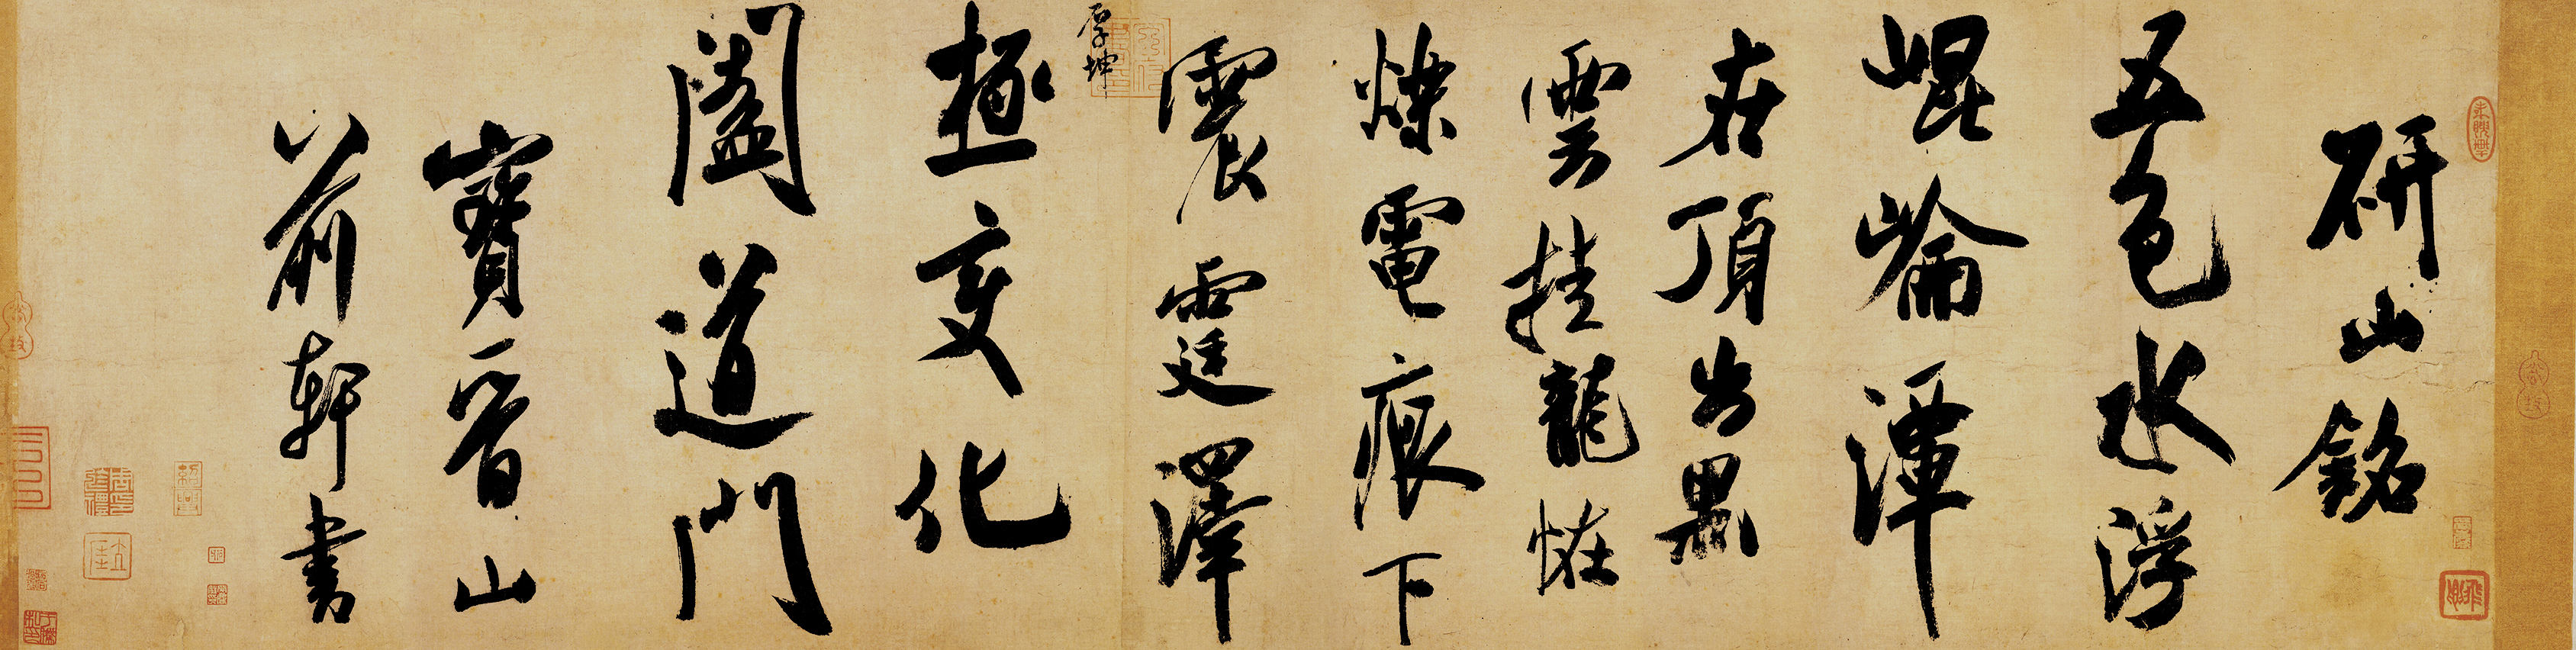 研山銘
五色水浮
崐崘潭
在頂出黑
雲挂龍怪
爍電痕下
震霆澤
厚坤
極变化
闔道門
寶晋山
前軒書